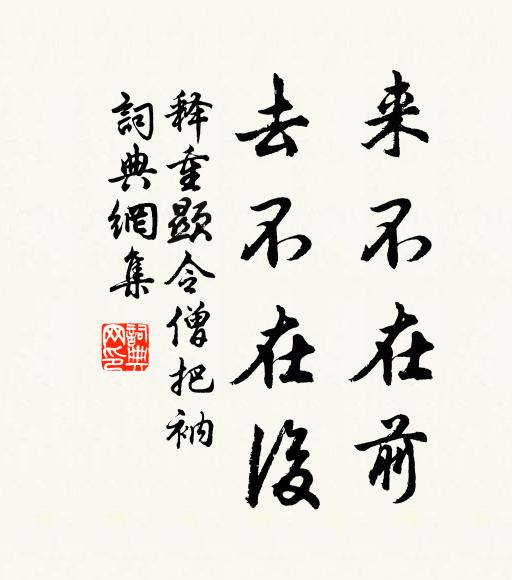 来不在前
去不在後
释重顯令僧把衲
詞典網集
詞典网印